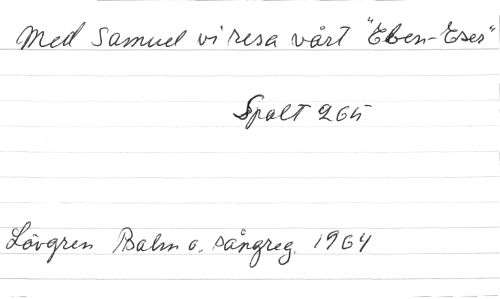 Med Samuel vi resa vårt "Eben-Eser"
Spalt 265
Lövgren Psalm o. sångreg. 1964